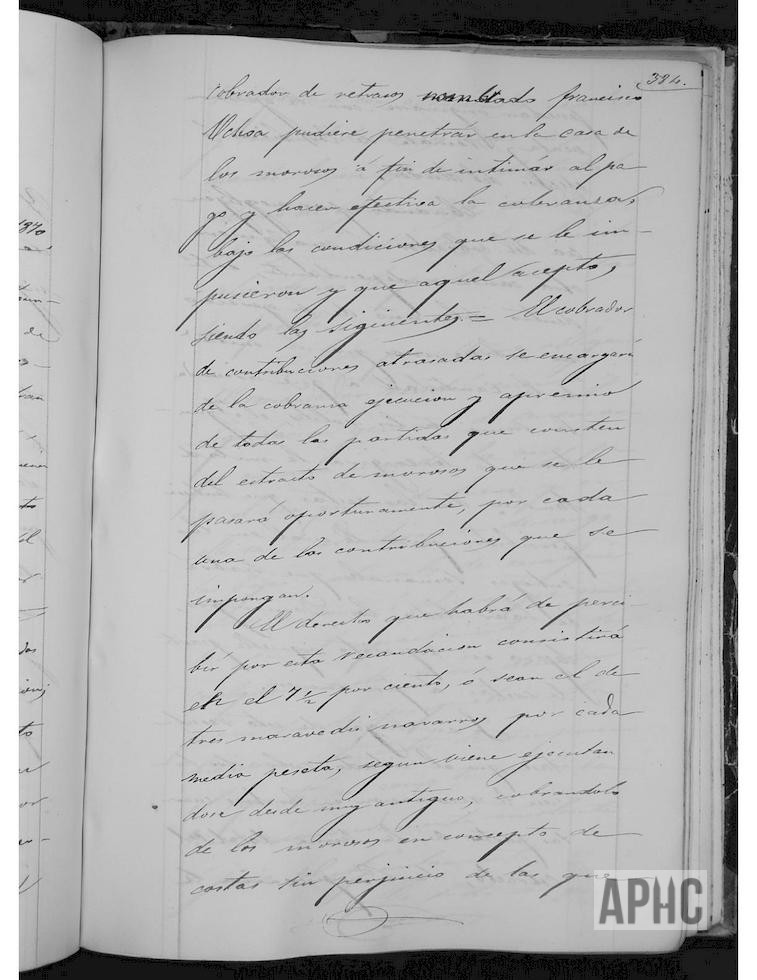 384.
cobrador de retrasos nombrado francisco
Ochoa pudiere penetrár en la casa de
los morosos á fin de intimár al pa
go y hacer efectiva la cobranza,
bajo las condiciones que se le im-
pusieron y que aquel acepto,
siendo las siguientes.= El cobrador
de contribuciones atrasadas se encargará
de la cobranza ejecucion y apremio
de todas las partidas que consten
del estracto de morosos que se le
pasará oportunamente, por cada
una de las contribuciones que se
impongan.
El derecho que habrá de perci-
bir por esta recaudacion consistirá
en el 7 1/2 por ciento, ó sean el de
tres maravedis navarros por cada
media peseta, segun viene ejecutan
dose desde muy antiguo, cobrandolo
de los morosos en concepto de
costas sin perjuicio de las que
1870
APHC